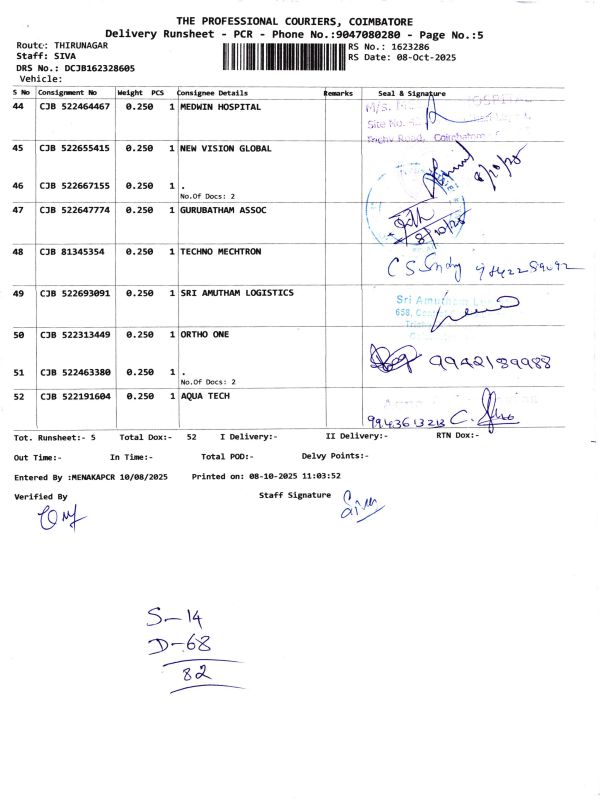 THE PROFESSIONAL COURIERS, COIMBATORE
Delivery Runsheet - PCR - Phone No.:9047080280 - Page No.:5
Route: THIRUNAGAR RS No.: 1623286
Staff: SIVA RS Date: 08-Oct-2025
DRS No.: DCJB162328605
Vehicle:
S No Consignment No Weight PCS Consignee Details Remarks Seal & Signature
44 CJB 522464467 0.250 1 MEDWIN HOSPITAL
M/S.
Site No.
Trichy Road, Coimbatore
45 CJB 522655415 0.250 1 NEW VISION GLOBAL
8/10/25
46 CJB 522667155 0.250 1 .
No.Of Docs: 2
47 CJB 522647774 0.250 1 GURUBATHAM ASSOC
8/10/25
48 CJB 81345354 1 0.250 1 TECHNO MECHTRON
49 CJB 522693091 0.250 1 SRI AMUTHAM LOGISTICS
Sri Amutham
658,
50 CJB 522313449 0.250 1 ORTHO ONE
9942189988
51 CJB 522463380 0.250 1 .
No.Of Docs: 2
52 CJB 522191604 0.250 1 AQUA TECH
9943613213 C.
Tot. Runsheet:- 5 Total Dox:- 52 I Delivery:- II Delivery:- RTN Dox:-
Out Time:- In Time:- Total POD:- Delvy Points:-
Entered By :MENAKAPCR 10/08/2025 Printed on: 08-10-2025 11:03:52
Verified By Staff Signature
S-14
D-68
82